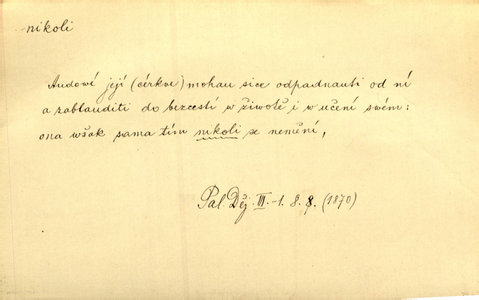 nikoli
Audowé její (církve) mohau sice odpadnauti od ní
a zablauditi do bezcestí w žiwotě i w učení swém:
ona wšak sama tím nikoli se nemění,
Pal. Děj. III.-1. 8. (1870)